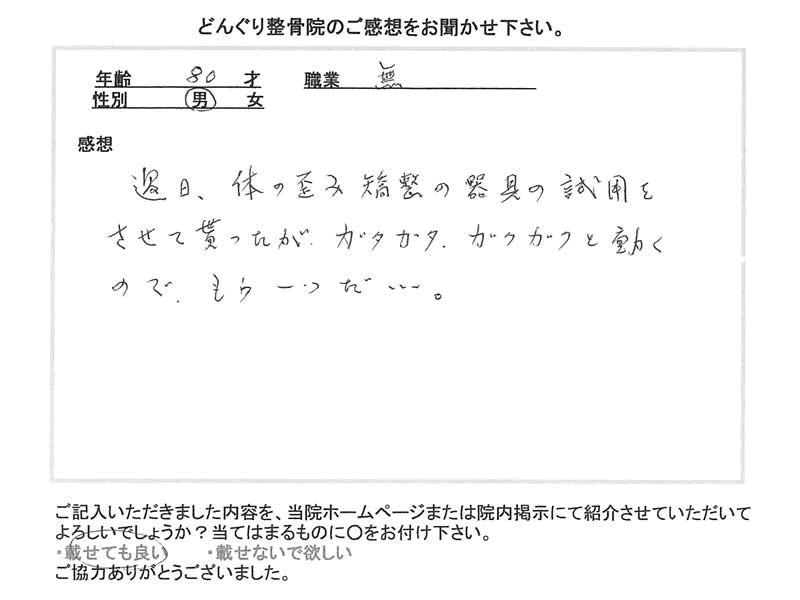 どんぐり整骨院のご感想をお聞かせ下さい。
年齢 80 才 職業 無
性別 男 女
感想
過日、体の歪み矯整の器具の試用を
させて貰ったが、ガタガタ、ガクガクと動く
ので、もう一つだ…。
ご記入いただきました内容を、当院ホームページまたは院内掲示にて紹介させていただいて
よろしいでしょうか？当てはまるものに〇をお付け下さい。
・載せても良い ・載せないで欲しい
ご協力ありがとうございました。